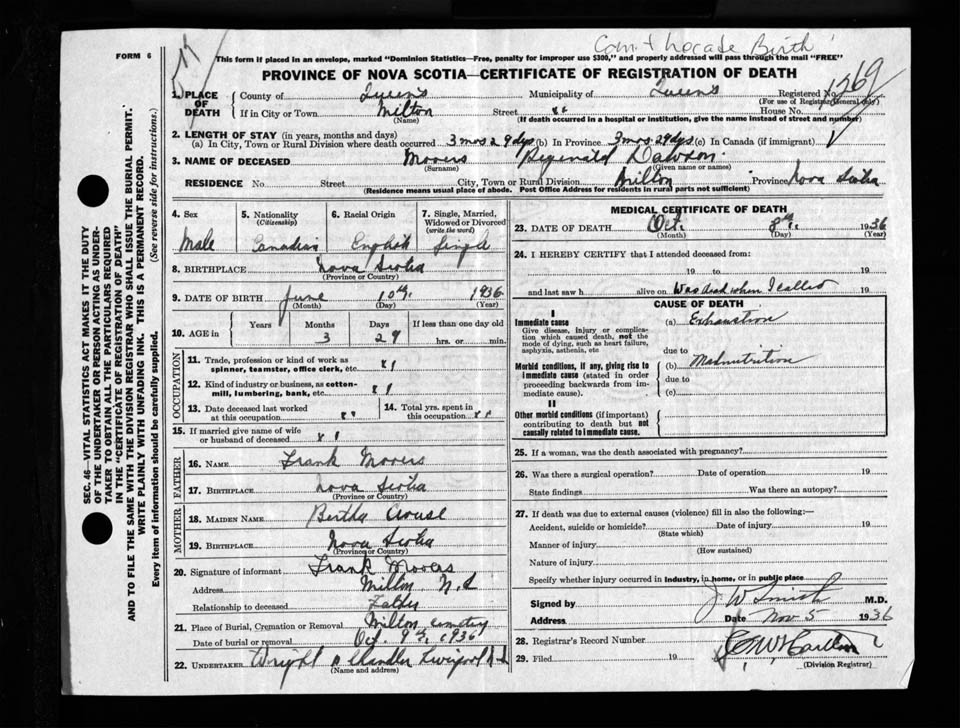 FORM 6
Can't Locate Birth
This form if placed in an envelope, marked "Dominion Statistics—Free, penalty for improper use $300," and properly addressed will pass through the mail "FREE"
PROVINCE OF NOVA SCOTIA—CERTIFICATE OF REGISTRATION OF DEATH
1. PLACE OF DEATH County of Queens Municipality of Queens Registered No. 1269
(For use of Registrar General only)
If in City or Town Milton Street House No.
(Name) (If death occurred in a hospital or institution, give the name instead of street and number)
2. LENGTH OF STAY (in years, months and days)
(a) In City, Town or Rural Division where death occurred 3 mos 29 dys (b) In Province 3 mos 29 dys (c) In Canada (if immigrant)
3. NAME OF DECEASED Moores Reginald Dawson
(Surname) (Given name or names)
RESIDENCE No. Street City, Town or Rural Division Milton Province Nova Scotia
(Residence means usual place of abode. Post Office Address for residents in rural parts not sufficient)
4. Sex
Male
5. Nationality (Citizenship)
Canadian
6. Racial Origin
English
7. Single, Married, Widowed or Divorced (write the word)
Single
8. BIRTHPLACE Nova Scotia
(Province or Country)
9. DATE OF BIRTH June 10th 1936
(Month) (Day) (Year)
10. AGE in Years Months Days If less than one day old
3 29 hrs. or min.
OCCUPATION
11. Trade, profession or kind of work as spinner, teamster, office clerk, etc.
12. Kind of industry or business, as cotton-mill, lumbering, bank, etc.
13. Date deceased last worked at this occupation
14. Total yrs. spent in this occupation
15. If married give name of wife or husband of deceased
FATHER
16. NAME Frank Moores
17. BIRTHPLACE Nova Scotia
(Province or Country)
MOTHER
18. MAIDEN NAME Bertha Crouse
19. BIRTHPLACE Nova Scotia
(Province or Country)
20. Signature of informant Frank Moores
Address Milton N.S
Relationship to deceased Father
21. Place of Burial, Cremation or Removal Milton cemetery
Date of burial or removal Oct. 9th, 1936
22. UNDERTAKER Wright & Chandler Liverpool N.S
(Name and address)
MEDICAL CERTIFICATE OF DEATH
23. DATE OF DEATH Oct. 8th. 1936
(Month) (Day) (Year)
24. I HEREBY CERTIFY that I attended deceased from:
19 to 19
and last saw h alive on Was dead when I called 19
CAUSE OF DEATH
I
Immediate cause
Give disease, injury or complication which caused death, not the mode of dying, such as heart failure, asphyxia, asthenia, etc
(a) Exhaustion
due to
Morbid conditions, if any, giving rise to immediate cause (stated in order proceeding backwards from immediate cause).
(b) Malnutrition
due to
(c)
II
Other morbid conditions (if important) contributing to death but not causally related to immediate cause.
25. If a woman, was the death associated with pregnancy?
26. Was there a surgical operation? Date of operation 19
State findings Was there an autopsy?
27. If death was due to external causes (violence) fill in also the following:—
Accident, suicide or homicide? Date of injury 19
(State which)
Manner of injury
(How sustained)
Nature of injury
Specify whether injury occurred in industry, in home, or in public place
Signed by J W Smith M.D.
Address Date Nov 5 1936
28. Registrar's Record Number
29. Filed 19
(Division Registrar)
SEC. 46—VITAL STATISTICS ACT MAKES IT THE DUTY
OF THE UNDERTAKER OR PERSON ACTING AS UNDERTAKER
TO OBTAIN ALL THE PARTICULARS REQUIRED
IN THE "CERTIFICATE OF REGISTRATION OF DEATH"
AND TO FILE THE SAME WITH THE DIVISION REGISTRAR WHO SHALL ISSUE THE BURIAL PERMIT.
WRITE PLAINLY WITH UNFADING INK. THIS IS A PERMANENT RECORD.
Every item of information should be carefully supplied. (See reverse side for instructions.)